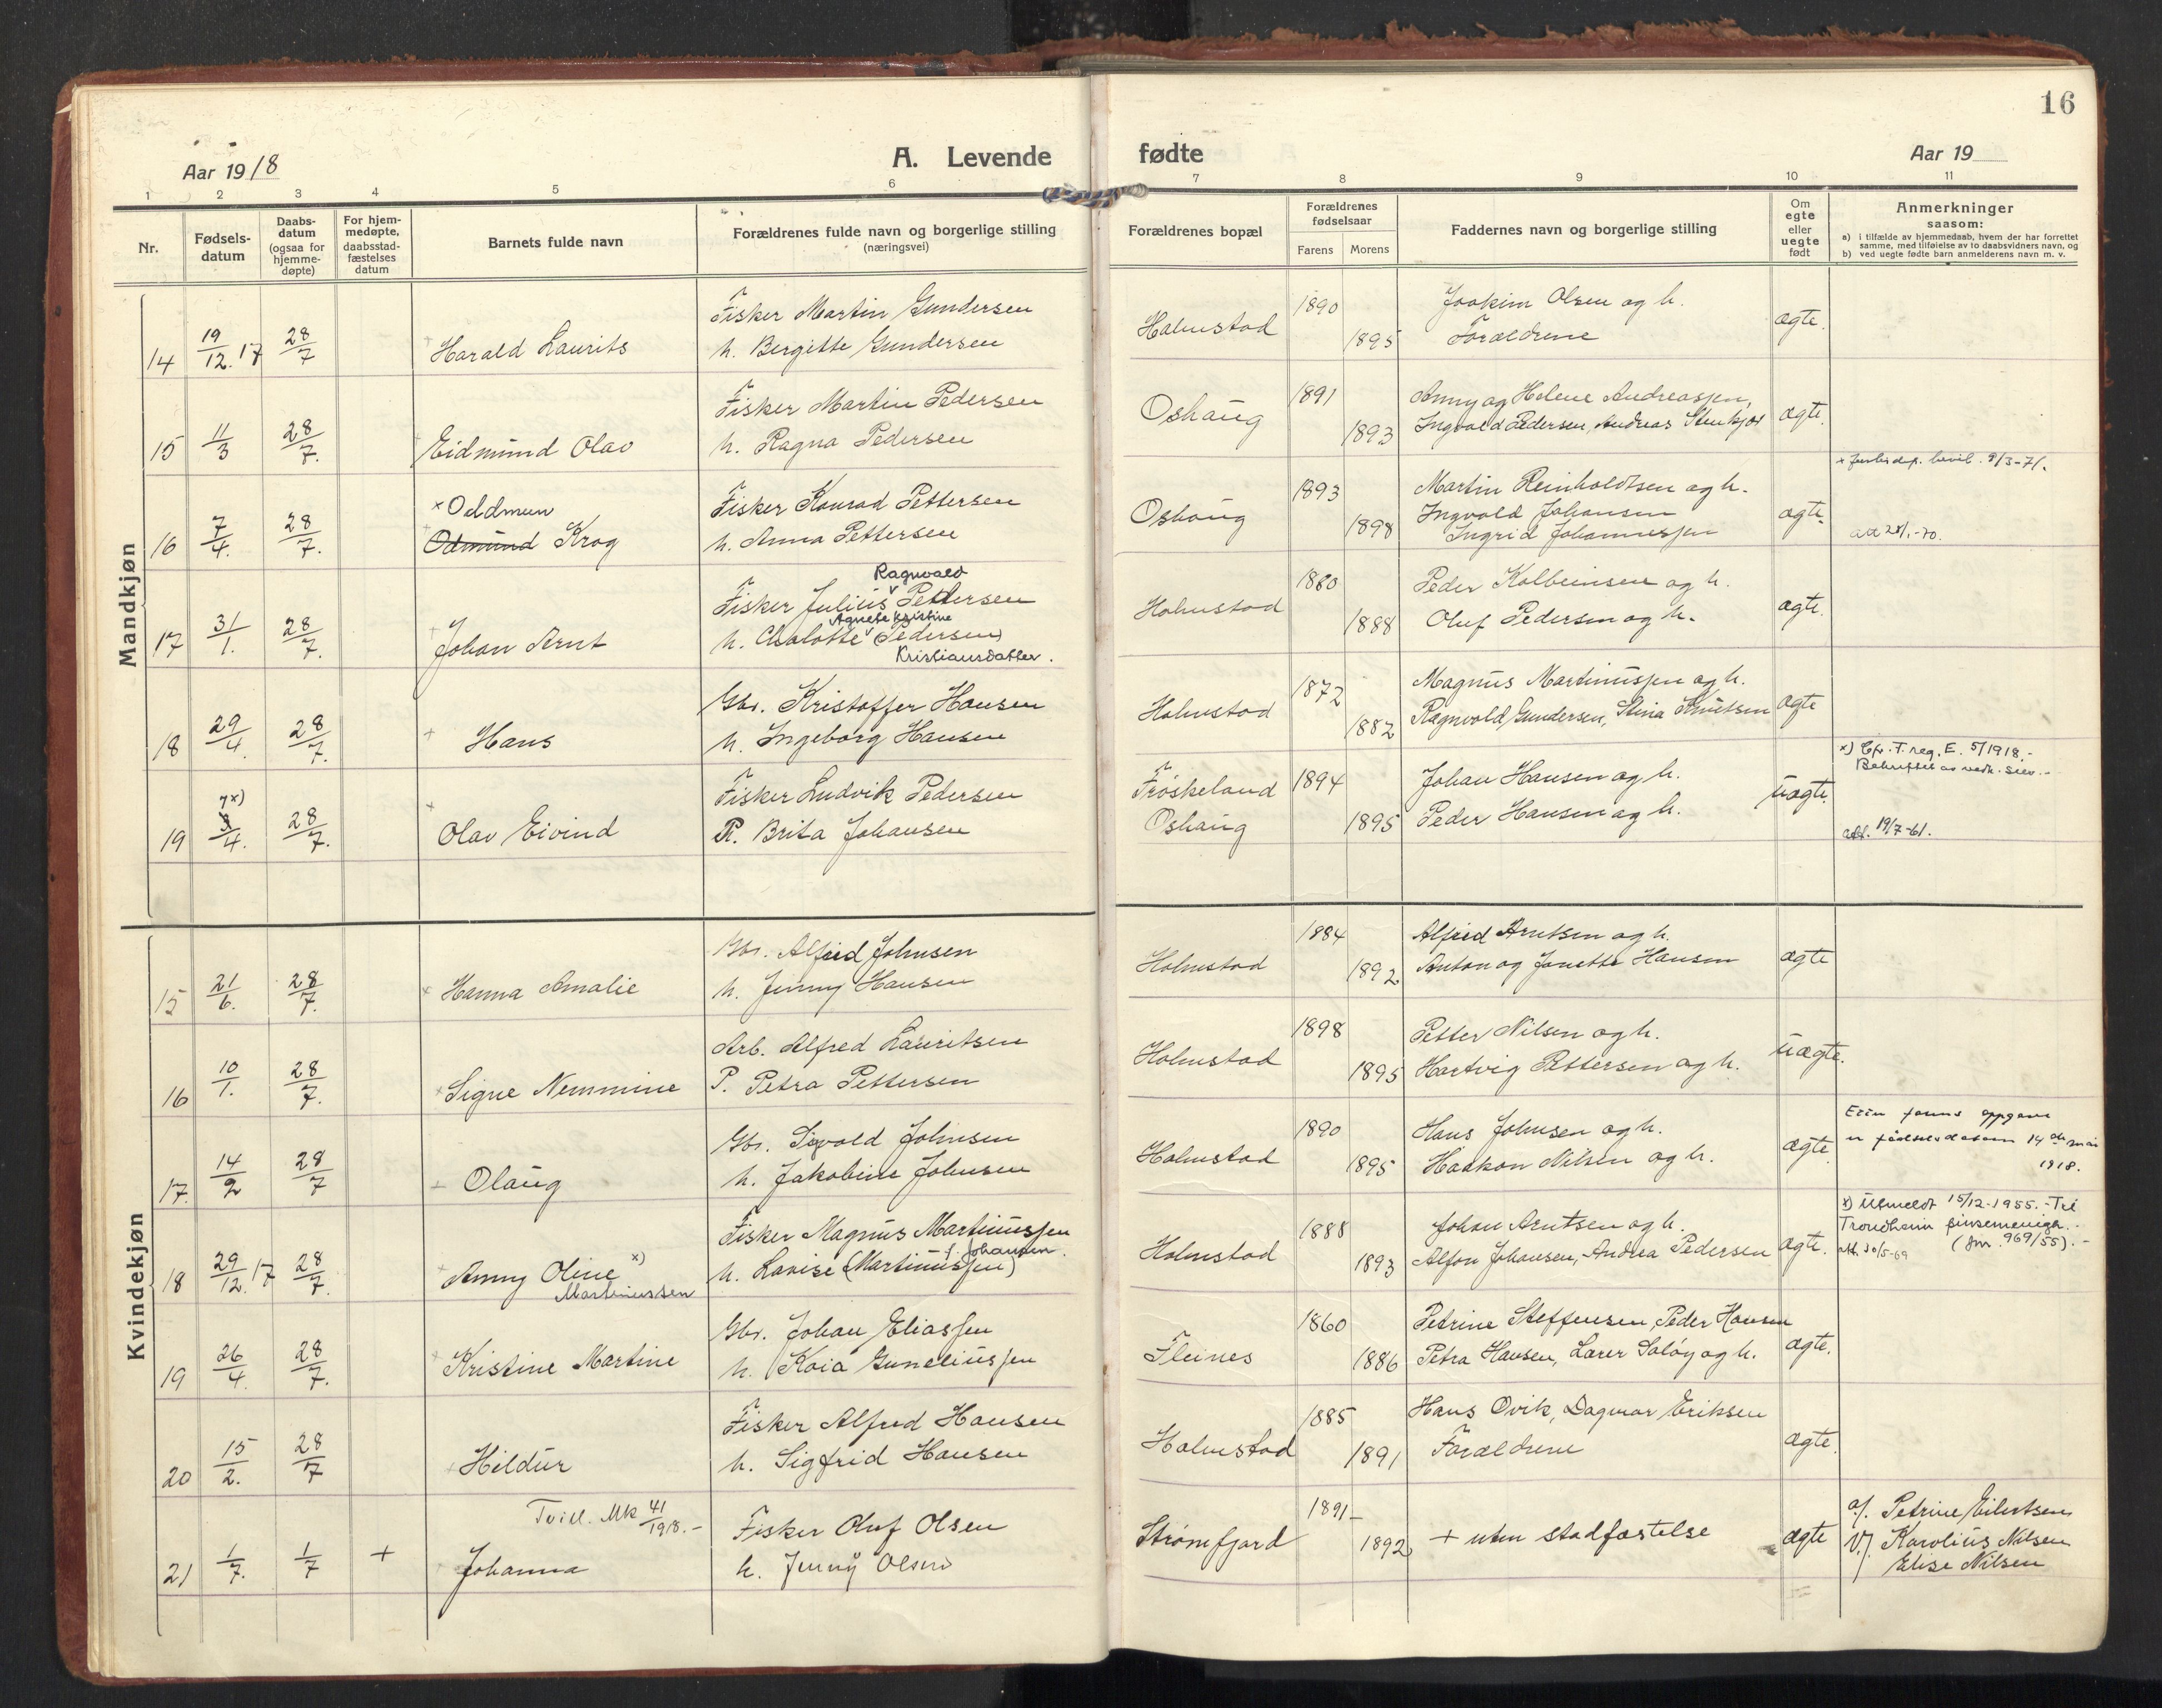 16
Aar 1918
A. Levende
fødte
Aar 19
1 2 3 4 5 6 7 8 9 10 11
Nr.
Fødsels-
datum
Daabs-
datum
(ogsaa for
hjemme-
døpte)
For hjem-
medøpte,
daabsstad-
fæstelses
datum
Barnets fulde navn
Forældrenes fulde navn og borgerlige stilling
(næringsvei)
Forældrenes bopæl
Forældrenes
fødselsaar
Farens Morens
Faddernes navn og borgerlige stilling
Om
egte
eller
uegte
født
Anmerkninger
saasom:
a) i tilfælde av hjemmedaab, hvem der har forrettet
samme, med tilføielse av to daabsvidners navn, og
b) ved uegte fødte barn anmelderens navn m. v.
Mandkjøn
Fisker Martin Gundersen 1890 Joakim Olsen og h.
14 19/12.17 28/7 Harald Laurits h. Bergitte Gundersen Holmstad 1895 Forældrene ægte.
Fisker Martin Pedersen 1891 Anny og Helene Andreassen,
15 11/3 28/7. Eidmund Olav h. Ragna Pedersen Oshaug 1893 Ingvald Pedersen, Andreas Stenkjør ægte.
x bevil. 9/3-71.
x Oddmun Fisker Konrad Pettersen 1893 Martin Reinholdtsen og h.
16 7/4. 28/7. Odmund Krog h. Anna Pettersen Oshaug 1898 Ingvald Johansen ægte.
Ingrid Johannessen att 28/1.-70.
Ragnvald
Fisker Julius Pettersen 1880 Peder Kolbeinsen og h.
Agnete Kristine
17 31/1. 28/7. Johan Arnt h. Chalotte (Pedersen) Holmstad 1888 Oluf Pedersen og h. ægte.
Kristiansdatter.
Gbr. Kristoffer Hansen 1872 Magnus Martinussen og h.
18 29/4. 28/7. Hans h. Ingeborg Hansen Holmstad 1882 Ragnvald Gundersen, Stina Knutsen ægte
x) T. reg. E. 5/1918.-
7x) Fisker Ludvik Pedersen Frøskeland 1894 Johan Hansen og h.
19 3/4. 28/7. Olav Eivind P. Brita Johansen Oshaug 1895 Peder Hansen og h. uægte.
att. 19/7-61.
Kvindekjøn
Gbr. Alfred Johnsen 1884 Alfred Arntsen og h.
15 21/6. 28/7. Hanna Amalie h. Jenny Hansen Holmstad 1892 Anton og Janette Hansen ægte
Arb. Alfred Lauritsen 1898 Petter Nilsen og h.
16 10/1. 28/7. Signe Nemmine P. Petra Pettersen Holmstad 1895 Hartvig Pettersen og h. uægte.
Gbr. Sigvald Johnsen 1890 Hans Johnsen og h. oppgave
17. 14/2 28/7 Olaug h. Jakobine Johnsen Holmstad 1895 Haakon Nilsen og h. ægte. er fødselsdatum 14de
1918.
Fisker Magnus Martinussen 1888 Johan Arntsen og h. x) Utmeldt 15/12-1955.- Til
f. Johansen. Trondheim pinsemenigh.-
18 29/12.17 28/7. Anny Oline x) h. Lovise (Martinussen) Holmstad 1893 Alfon Johansen, Andrea Pedersen ægte. (jnr. 969/55).-
Martinussen att. 30/5-69
Gbr. Johan Eliassen 1860 Petrine Steffensen, Peder Hansen
19 26/4. 28/7. Kristine Martine h. Kaia Guneliussen Fleines 1886 Petra Hansen, Lærer Saløy og h. ægte.
Fisker Alfred Hansen 1885 Hans Ovik, Dagmar Eriksen
20 15/2. 28/7 Hildur h. Sigfrid Hansen Holmstad 1891 Forældrene ægte.
Tvill. Mk 41/1918.- Fisker Oluf Olsen 1891 a/. Petrine Eilertsen
21 1/7. 1/7 + Johanna h. Jenny Olsen Strømfjord 1892 + uten stadfæstelse ægte V/. Karolius Nilsen
Elise Nilsen